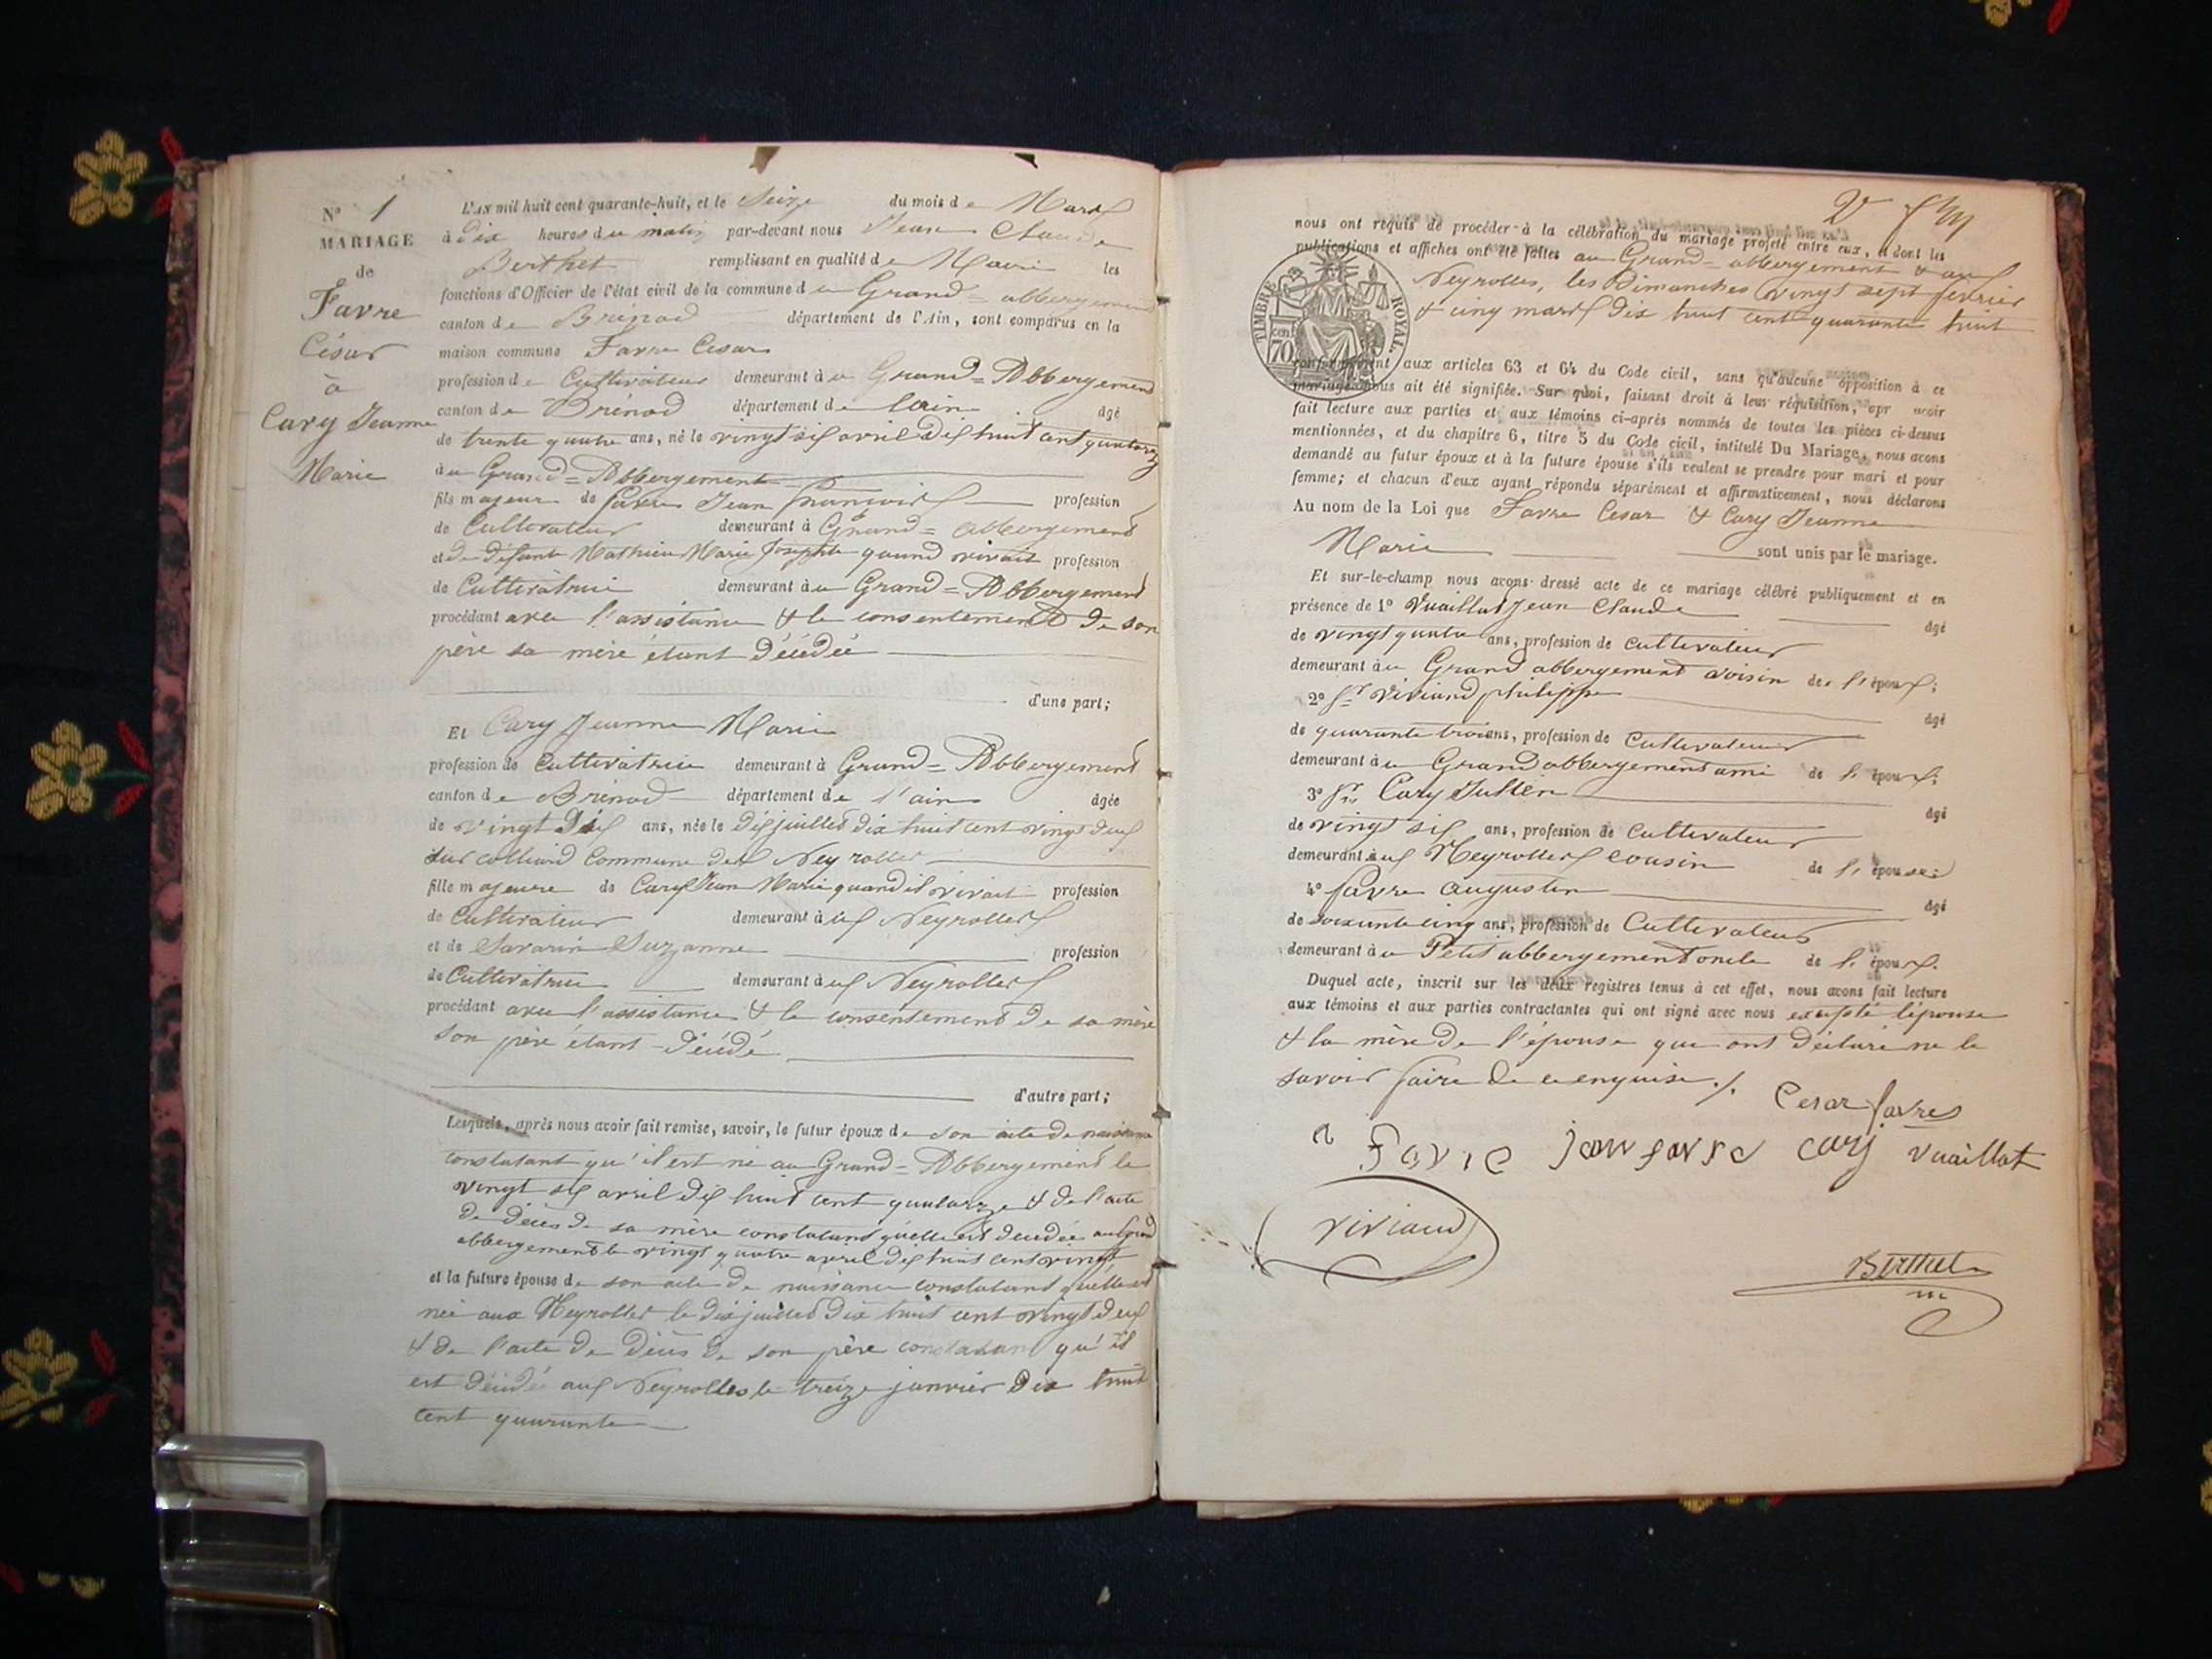 N° 1
MARIAGE
de
Favre
César
à
Cary Jeanne
Marie
L'AN mil huit cent quarante-huit, et le Seize du mois de Mars
à Dix heures du matin par-devant nous Jean Claude
Berthet remplissant en qualité de Maire les
fonctions d'Officier de l'état civil de la commune du Grand=abbergement
canton de Brénod département de l'Ain, sont comparus en la
maison commune Favre Cesar
profession de Cultivateur demeurant à u Grand=Abbergement
canton de Brénod département de lain âgé
de trente quatre ans, né le vingt six avril dix huit cent quatorze
à u Grand=Abbergement
fils majeur de favre Jean françois profession
de Cultivateur demeurant à Grand=abbergement
et de défunte Mathieu Marie Josephte quand vivait profession
de Cultivatrice demeurant à u Grand=Abbergement
procédant avec l'assistance & le consentement de son
père sa mère étant décédée
d'une part;
Et Cary Jeanne Marie
profession de Cultivatrice demeurant à Grand=Abbergement
canton de Brénod département de l'ain âgée
de vingt Six ans, née le dix juillet dix huit cent vingt deux
sur colliard Commune des Neyrolles
fille majeure de Cary Jean Marie quand il vivait profession
de Cultivateur demeurant à ux Neyrolles
et de Savarin Suzanne profession
de Cultivatrice demeurant à ux Neyrolles
procédant avec l'assistance & le consentement de sa mère
son père étant décédé
d'autre part;
Lesquels, après nous avoir fait remise, savoir, le futur époux de son acte de naissance
constatant qu'il est né au Grand=Abbergement le
vingt six avril dix huit cent quatorze & de l'acte
de décès de sa mère constatant quelle est decedée au Grand
abbergement le vingt quatre avril dix huit cent vingt
et la future épouse de son acte de naissance constatant quelle est
née aux Neyrolles le dix juillet dix huit cent vingt deux
& de l'acte de décès de son père constatant qu'il
est décédé aux Neyrolles le treize janvier dix huit
cent quarante
nous ont requis de procéder à la célébration du mariage projeté entre eux, et dont les
publications et affiches ont été faites au Grand=abbergement & aux
Neyrolles, les Dimanches vingt sept fevrier
& cinq mars dix huit cent quarante huit
TIMBRE ROYAL.
70 cent
conformément aux articles 63 et 64 du Code civil, sans qu'aucune opposition à ce
mariage nous ait été signifiée. Sur quoi, faisant droit à leur réquisition, apr avoir
fait lecture aux parties et aux témoins ci-après nommés de toutes les pièces ci-dessus
mentionnées, et du chapitre 6, titre 5 du Code civil, intitulé Du Mariage, nous avons
demandé au futur époux et à la future épouse s'ils veulent se prendre pour mari et pour
femme; et chacun d'eux ayant répondu séparément et affirmativement, nous déclarons
Au nom de la Loi que Favre Cesar & Cary Jeanne
Marie sont unis par le mariage.
Et sur-le-champ nous avons dressé acte de ce mariage célébré publiquement et en
présence de 1° Vuaillat Jean Claude âgé
de vingt quatre ans, profession de Cultivateur
demeurant à u Grand abbergement voisin de l'époux;
2° Sr Viviand philippe âgé
de quarante trois ans, profession de Cultivateur
demeurant à u Grand abbergement ami de l'époux;
3° Sr Cary Jullien âgé
de vingt six ans, profession de Cultivateur
demeurant à ux Neyrolles cousin de l'épouse;
4° favre augustin âgé
de soixante cinq ans, profession de Cultivateur
demeurant à u Petit abbergement oncle de l'époux.
Duquel acte, inscrit sur les deux registres tenus à cet effet, nous avons fait lecture
aux témoins et aux parties contractantes qui ont signé avec nous excepté l'épouse
& la mère de l'épouse qui ont déclaré ne le
savoir faire de ce enquise ./.
Cesar favre
a Favre jan favre cary Vuaillat
viviand
Berthet